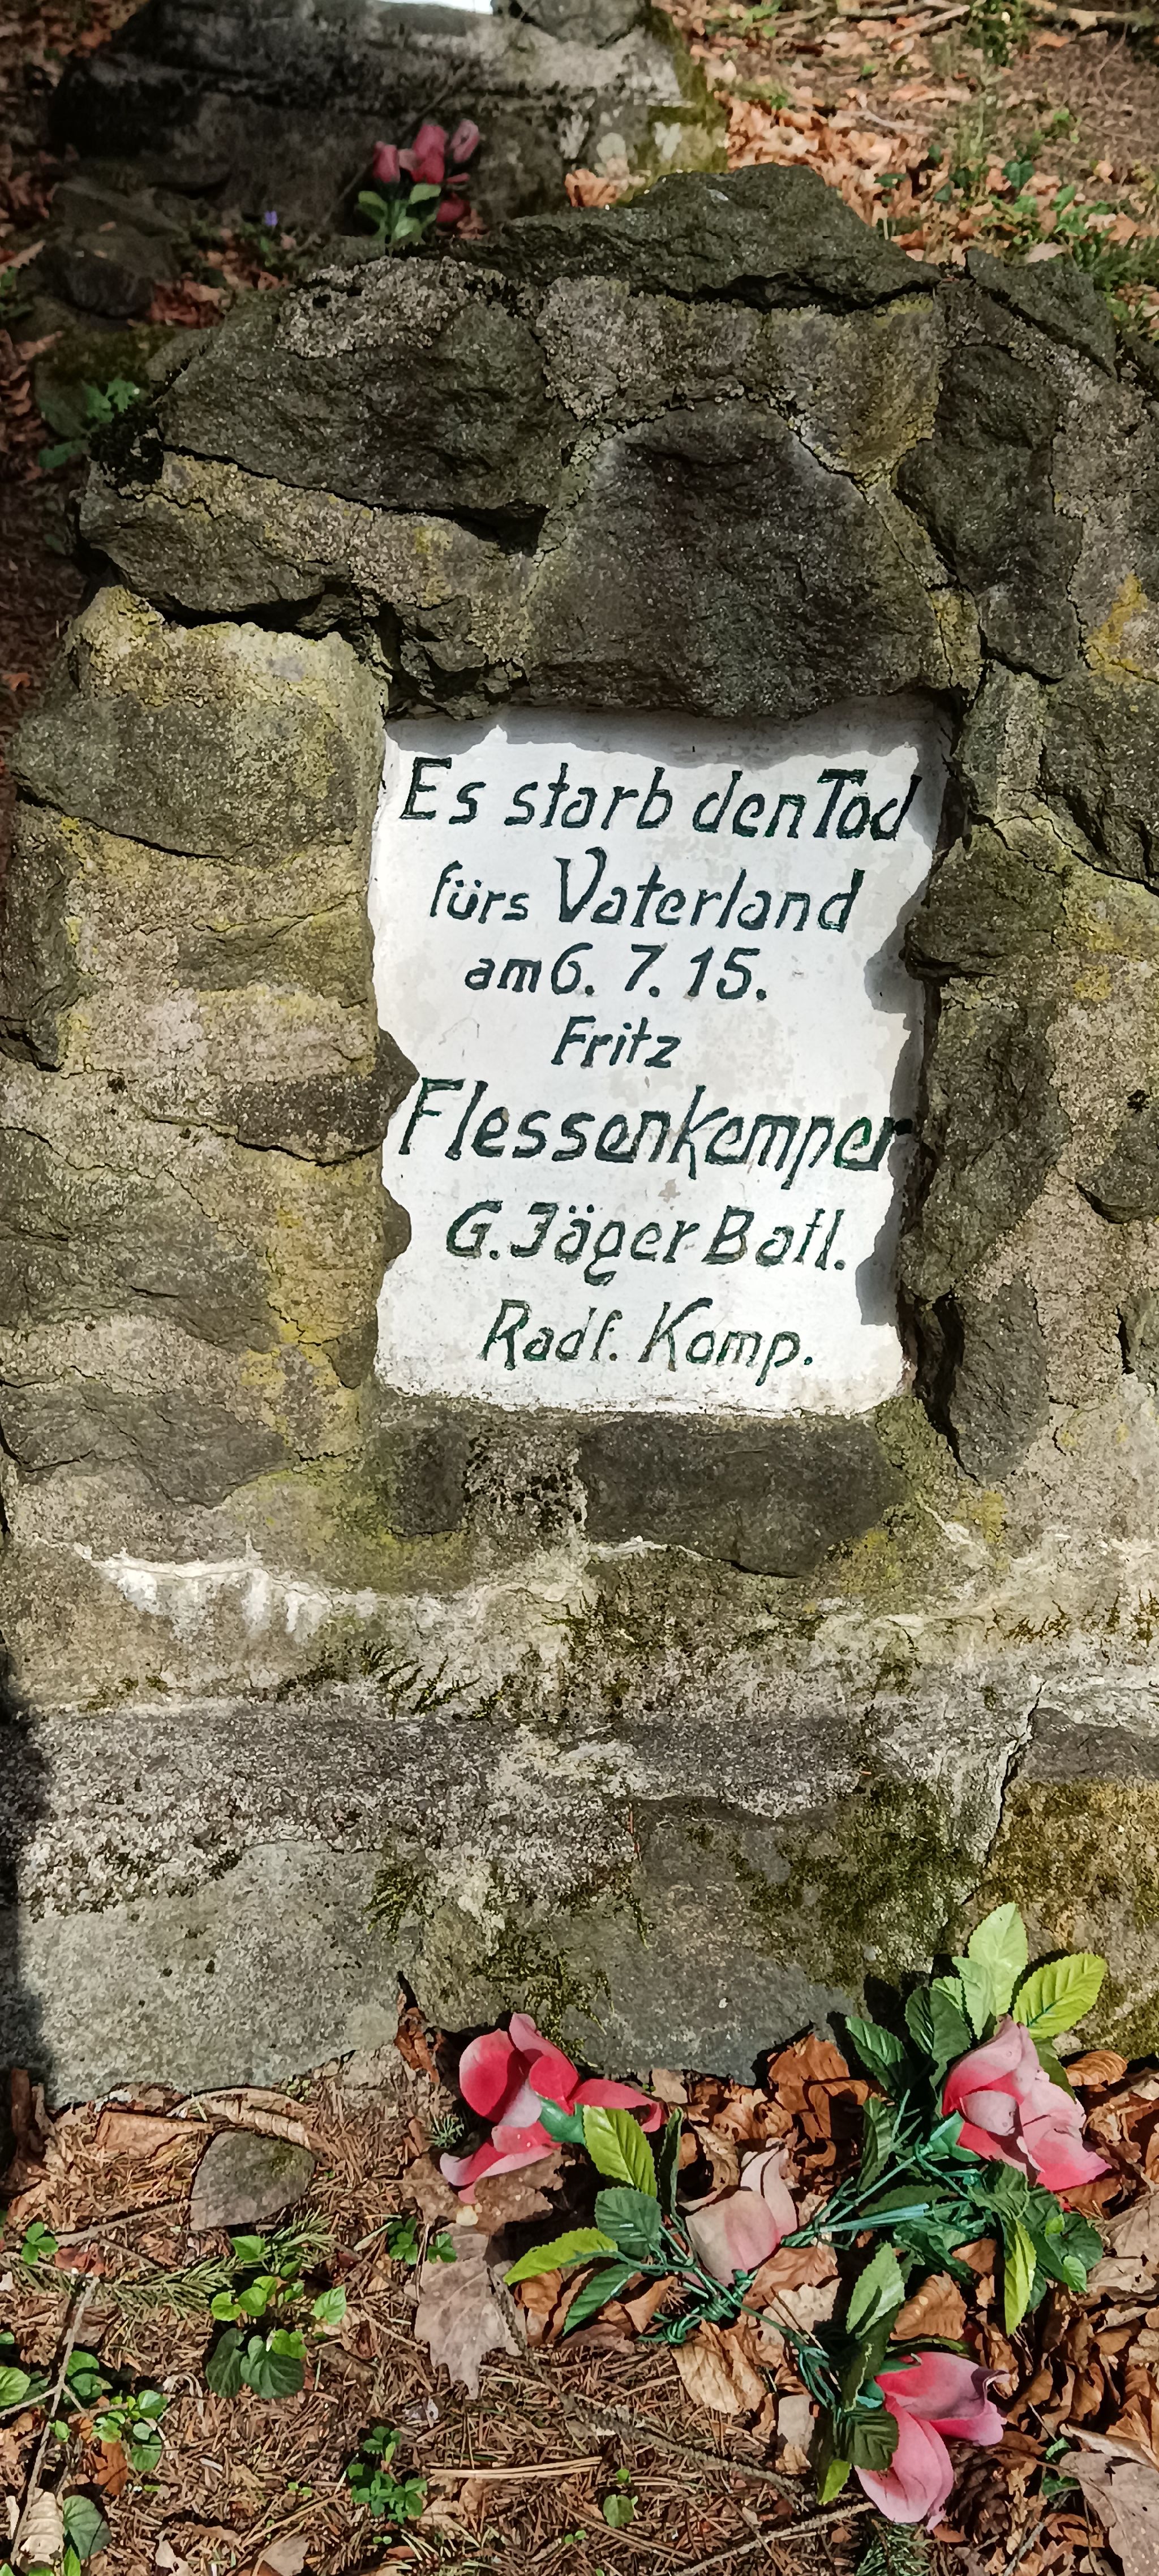 Es starb den Tod
fürs Vaterland
am 6. 7. 15.
Fritz
Flessenkemper
G. Jäger Batl.
Radf. Komp.